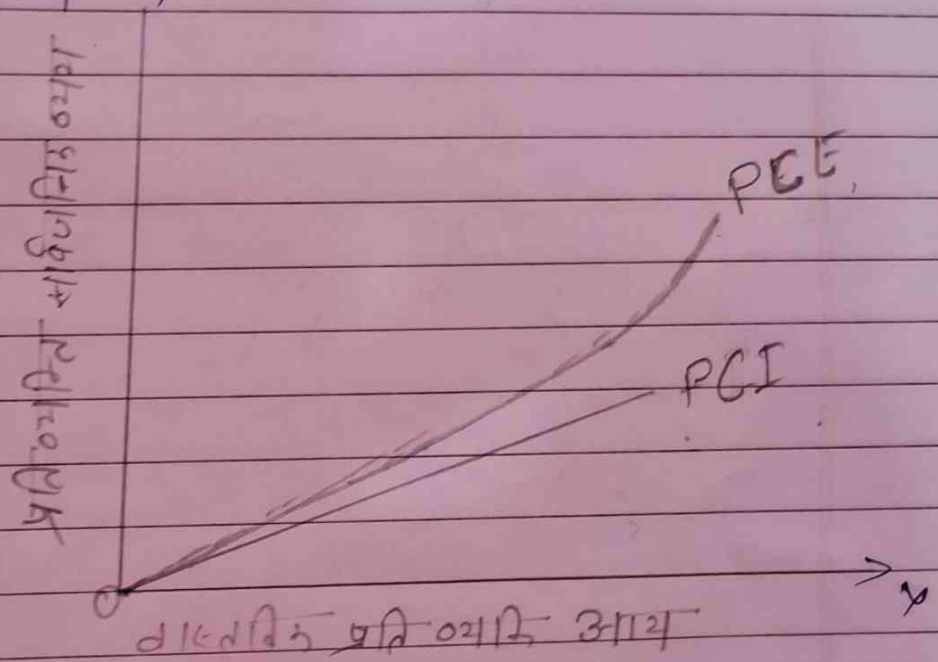 प्रति व्यक्ति सार्वजनिक व्यय
PEE
PCI
O
x
वास्तविक प्रति व्यक्ति आय